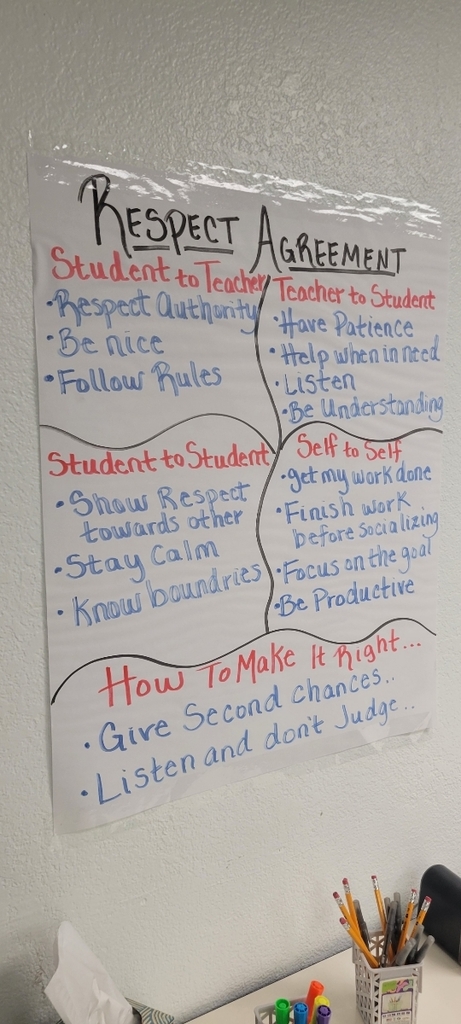 RESPECT AGREEMENT
Student to Teacher
•Respect Authority
•Be nice
•Follow Rules
Teacher to Student
•Have Patience
•Help when in need
•Listen
•Be Understanding
Student to Student
•Show Respect
towards other
•Stay Calm
•Know boundries
Self to Self
•get my work done
•Finish work
before socializing
•Focus on the goal
•Be Productive
How To Make It Right...
•Give Second chances..
•Listen and don't Judge..